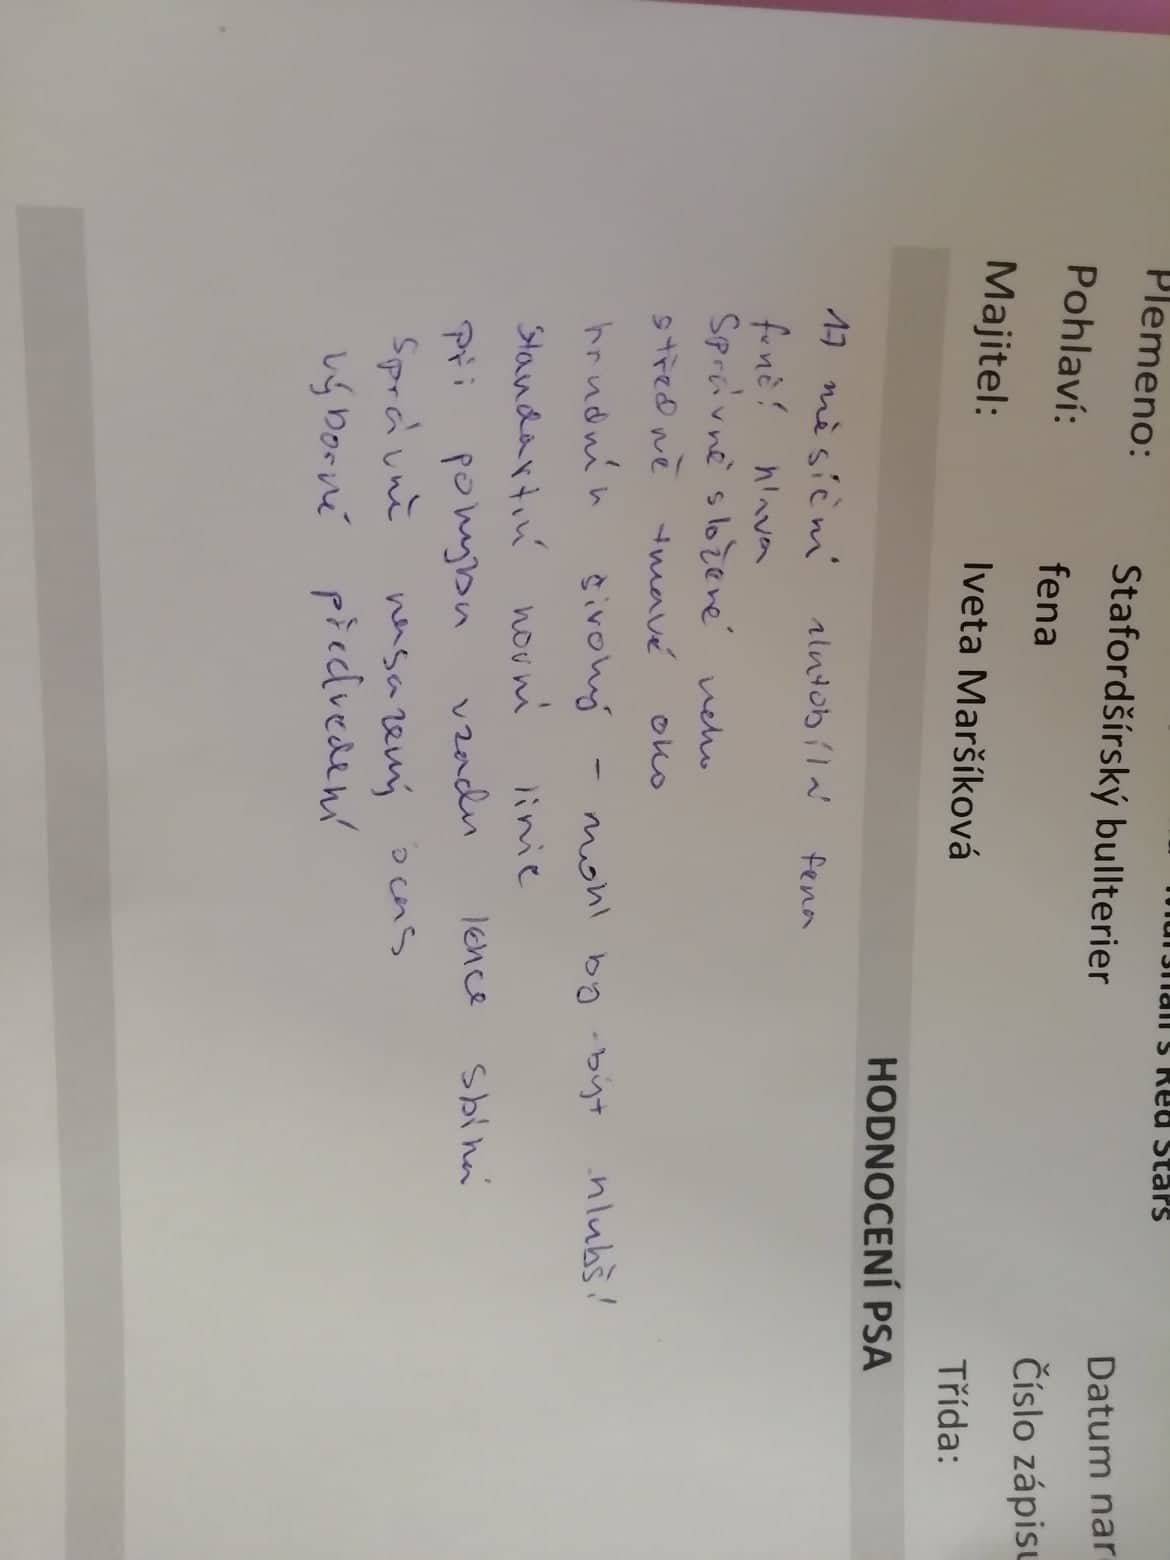 Marshall's Red Stars
Plemeno: Stafordšírský bullterier Datum nar
Pohlaví: fena Číslo zápisu
Majitel: Iveta Maršíková Třída:
HODNOCENÍ PSA
17 měsíční zlatobílá fena
fenčí hlava
Správně složené ucho
středně tmavé oko
hrudník široký - mohl by být hlubší
standartní horní linie
při pohybu vzadu lehce sbíhá
správně nasazený ocas
výborné předvedení